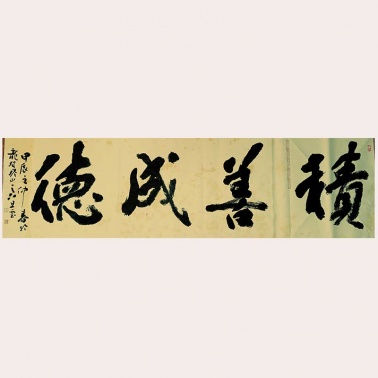 積善成德
甲辰之仲春於